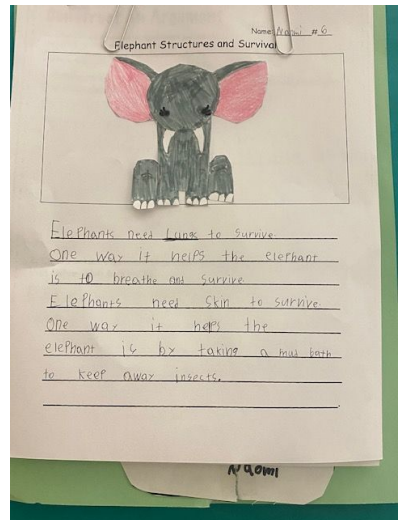 Name Naomi #6
Elephant Structures and Survival
Elephants need Lungs to survive.
One way it helps the elephant
is to breathe and survive.
Elephants need skin to survive.
One way it helps the
elephant is by taking a mud bath
to keep away insects.
Naomi